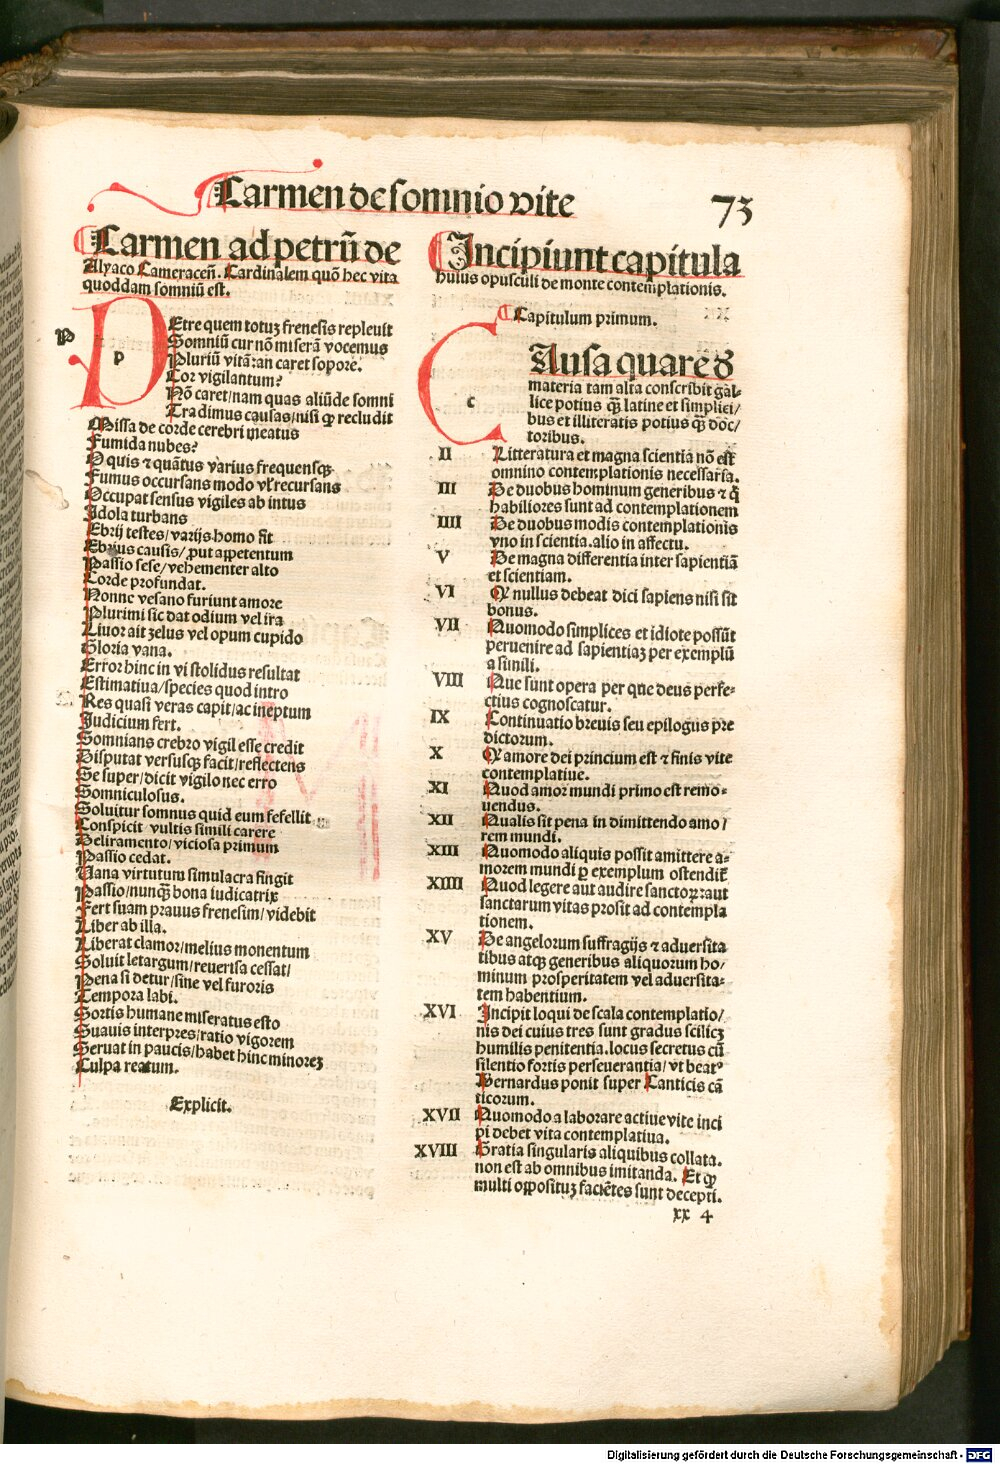 Carmen de somnio vite 73
Carmen ad petrū de
Alyaco Cameraceñ. Cardinalem quō hec vita
quoddam somniū est.
P
p
PEtre quem totuꝫ frenesis repleuit
Somniū cur nō miserā vocemus
Pluriū vitā: an caret sopore.
Cor vigilantum?
Nō caret/nam quas aliūde somni
Tradimus causas/nisi ꝙ recludit
Missa de corde cerebri meatus
Fumida nubes?
O quis ⁊ quātus varius frequensqꝫ
Fumus occursans modo vl' recursans
Occupat sensus vigiles ab intus
Idola turbans
Ebrij testes/varijs homo fit
Ebrius causis/ ꝓut appetentum
Passio sese/vehementer alto
Corde profundat.
Nonne vesano furiunt amore
Plurimi sic dat odium vel ira
Liuor ait zelus vel opum cupido
Gloria vana.
Error hinc in vi stolidus resultat
Estimatiua/species quod intro
Res quasi veras capit/ac ineptum
Judicium fert.
Somnians crebro vigil esse credit
Disputat versusqꝫ facit/reflectens
Se super/dicit vigilo nec erro
Somniculosus.
Soluitur somnus quid eum fefellit
Conspicit vultis simili carere
Deliramento/viciosa primum
Passio cedat.
Vana virtutum simulacra fingit
Passio/nunqꝫ bona iudicatrix
Fert suam prauus frenesim/videbit
Liber ab illa.
Liberat clamor/melius monentum
Soluit letargum/reuersa cessat/
Pena si detur/sine vel furoris
Tempora labi.
Sortis humane miseratus esto
Suauis interpres/ratio vigorem
Seruat in paucis/habet hinc minoreꝫ
Culpa reatum.
Explicit.
Incipiunt capitula
huius opusculi de monte contemplationis.
Capitulum primum.
c
CAusa quare d'
materia tam alta conscribit gal-
lice potius qꝫ latine et simplici/
bus et illiteratis potius qꝫ doc/
toribus.
II Litteratura et magna scientia nō est
omnino contemplationis necessaria.
III De duobus hominum generibus ⁊ q̄
habiliores sunt ad contemplationem
IIII De duobus modis contemplationis
vno in scientia. alio in affectu.
V De magna differentia inter sapientiā
et scientiam.
VI Ꝙ nullus debeat dici sapiens nisi sit
bonus.
VII Quomodo simplices et idiote possūt
peruenire ad sapientiaꝫ per exemplū
a simili.
VIII Que sunt opera per que deus perfe-
ctius cognoscatur.
IX Continuatio breuis seu epilogus pre
dictorum.
X Ꝙ amore dei princium est ⁊ finis vite
contemplatiue.
XI Quod amor mundi primo est remo-
uendus.
XII Qualis sit pena in dimittendo amo/
rem mundi.
XIII Quomodo aliquis possit amittere a-
morem mundi ꝑ exemplum ostendit̄
XIIII Quod legere aut audire sanctoꝝ: aut
sanctarum vitas prosit ad contempla
tionem.
XV De angelorum suffragijs ⁊ aduersita
tibus atqꝫ generibus aliquorum ho/
minum prosperitatem vel aduersita-
tem habentium.
XVI Incipit loqui de scala contemplatio/
nis dei cuius tres sunt gradus scilicꝫ
humilis penitentia. locus secretus cū
silentio fortis perseuerantia/ vt beatꝰ
Bernardus ponit super Canticis cā
ticorum.
XVII Quomodo a laborare actiue vite inci
pi debet vita contemplatiua.
XVIII Gratia singularis aliquibus collata.
non est ab omnibus imitanda. Et ꝙ
multi oppositum faciētes sunt decepti.
xx 4
Digitalisierung gefördert durch die Deutsche Forschungsgemeinschaft - DFG